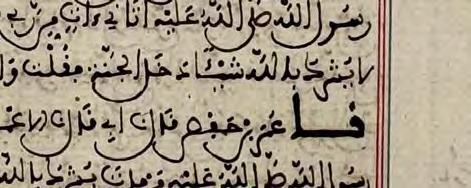 رسول الله صلى الله عليه أتاني ءات من ربي
لا يشرك بالله شيئا دخل الجنة فقلت وا
نا عمر بن حفص قال نا أبي قال نا الاعمـ
رسول الله صلى الله عليه من مات يشرك بالله